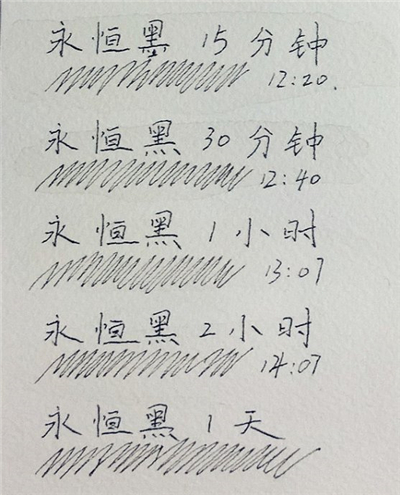 永恒黑 15分钟
12:20.
永恒黑 30分钟
12:40
永恒黑 1小时
13:07
永恒黑 2小时
14:07
永恒黑 1天